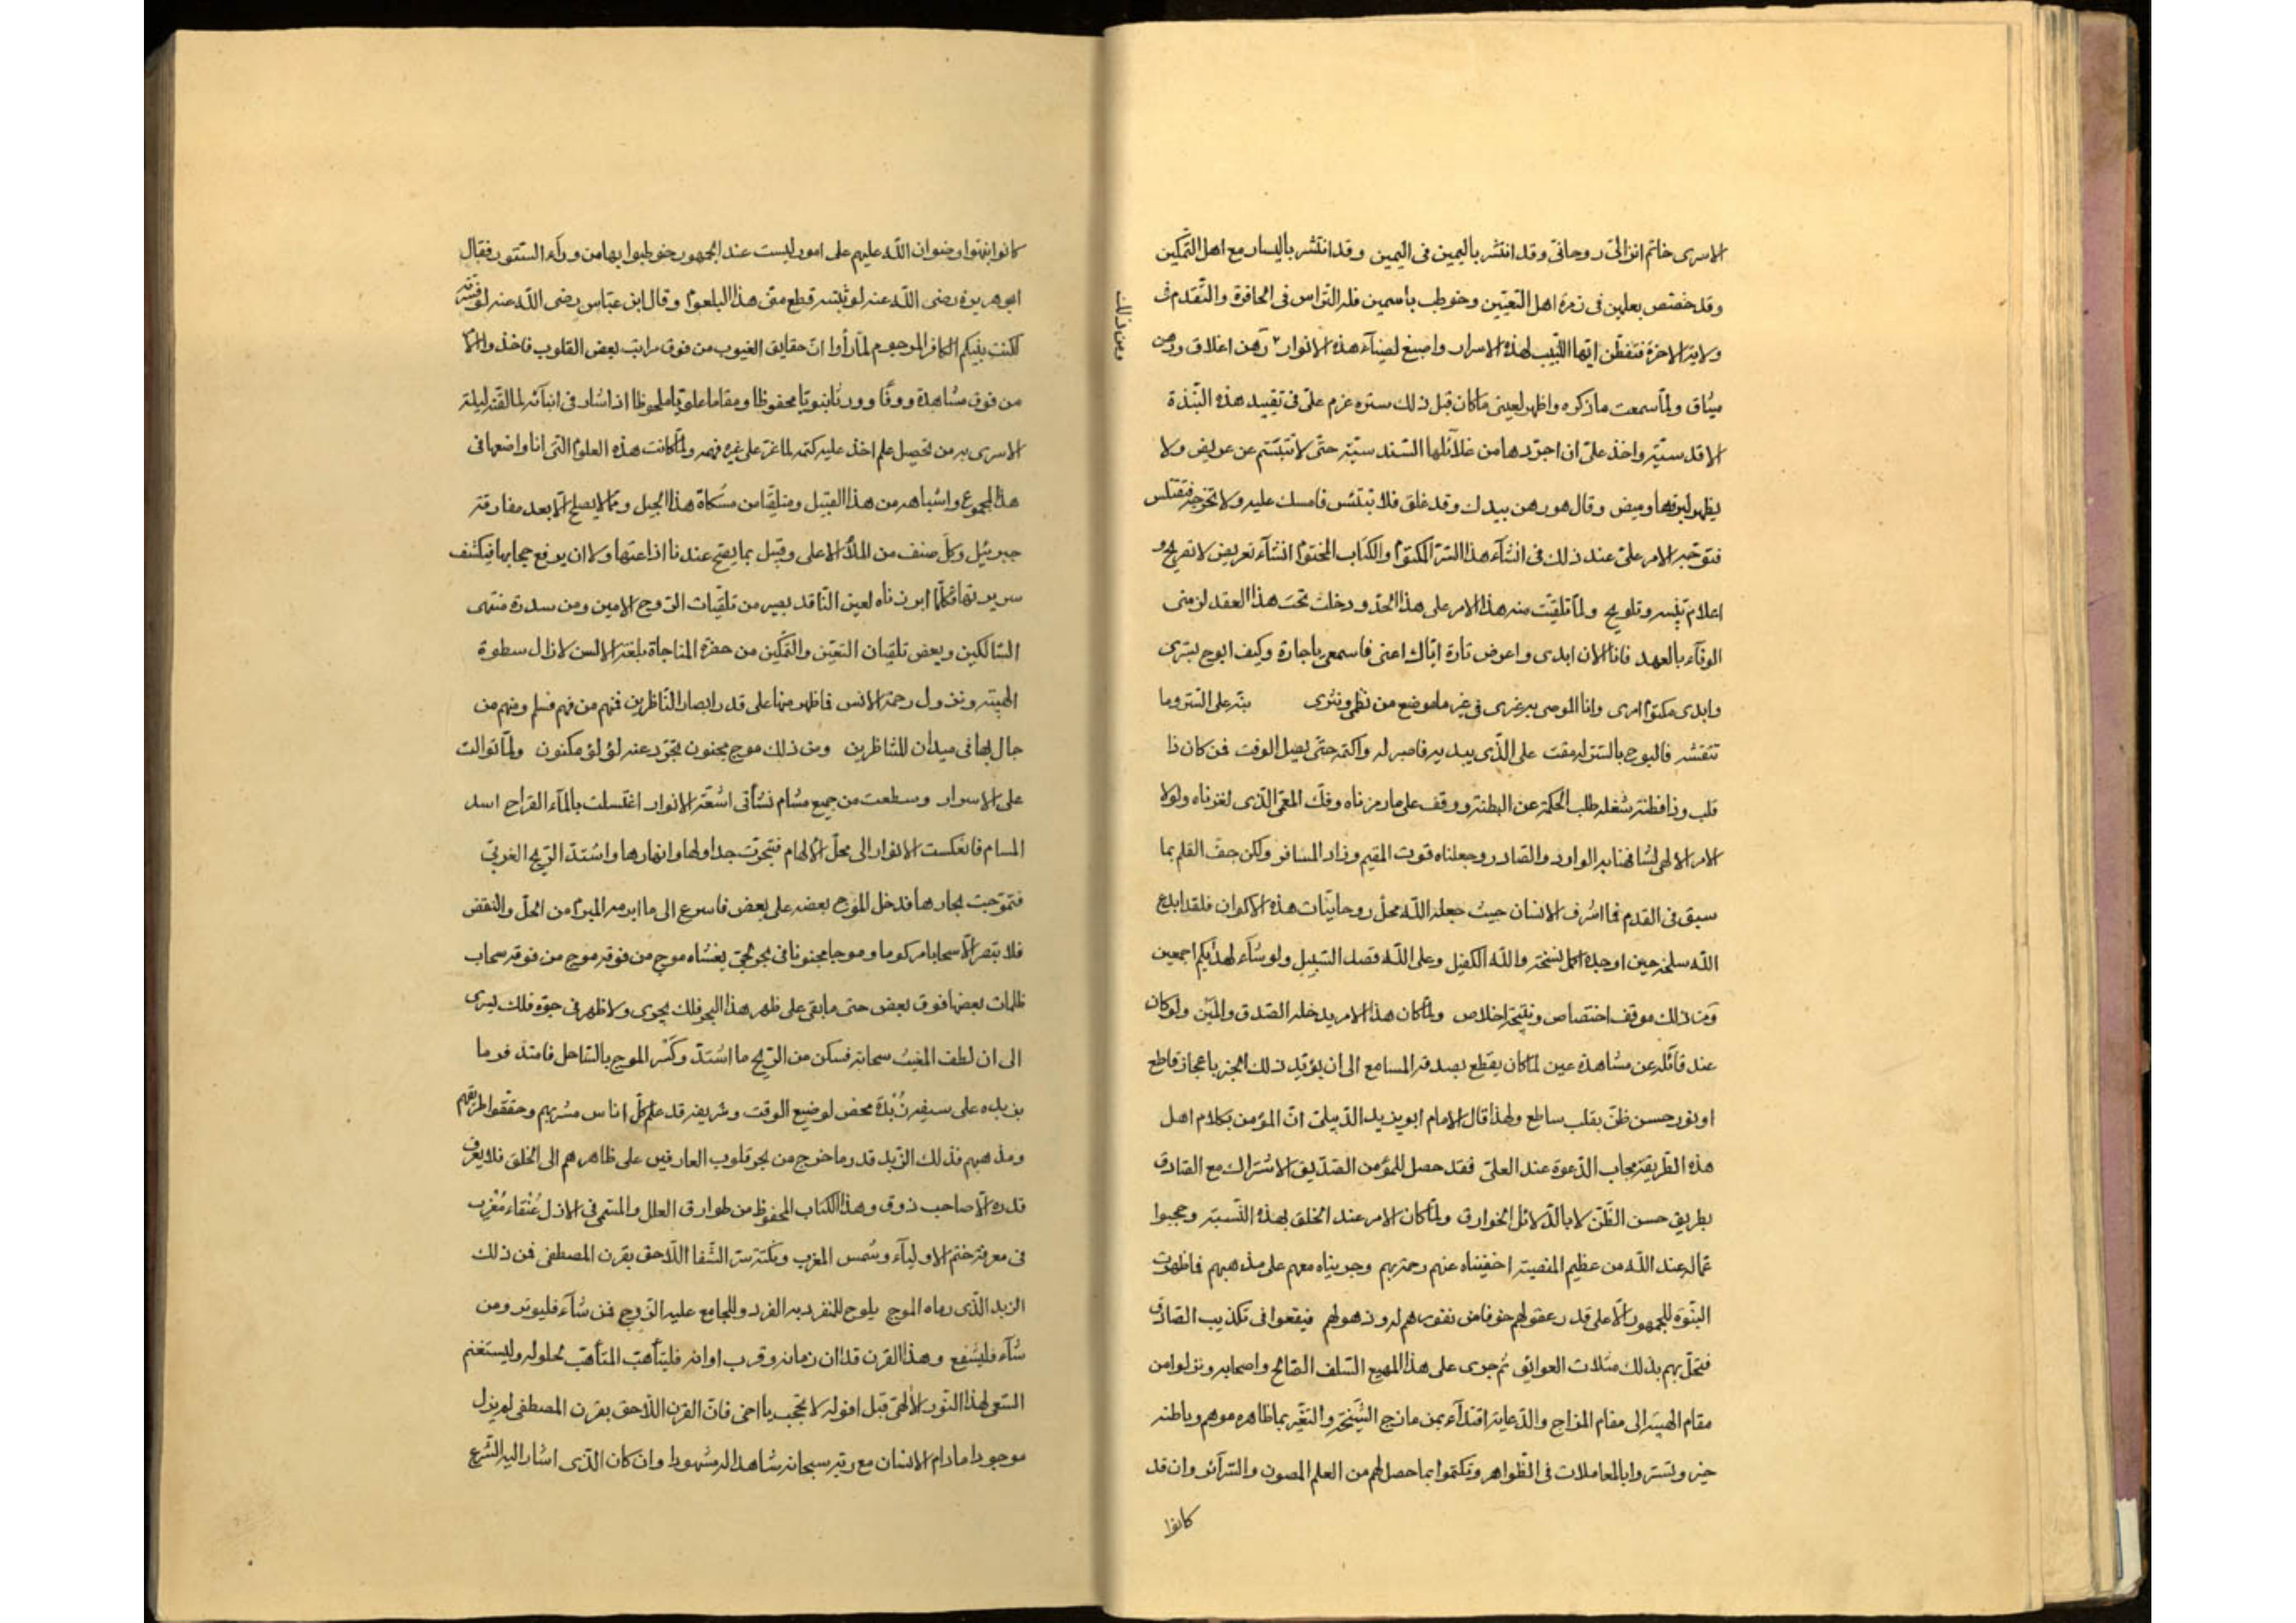 الاسرى خاتم انزالى روحانى وقد انتشر باليمين فى اليمين وقد انتشر باليسار مع اهل التمكين
وقد خصص بعلمين فى زمرة اهل التعيين وخوطب باسمين فله التراس فى الحافرة والتقدم فى
ولاية الاخرة فتفطن ايها اللبيب لهذه الاسرار واصبغ لضيآء هذه الانوار رهن اغلاق ورهن
ميثاق ولمّا سمعت ما ذكره واظهر لعينى ما كان قبل ذلك ستره عزم علىّ فى تقييد هذه النبذة
الاقدسية واخذ علىّ ان اجردها من غلائلها السندسية حتى لا تتبسم عن عريض ولا
يظهر لبرقها وميض وقال هو رهن بيدك وقد غلق فلا تبتئس فامسك عليه ولا تخرجه فتفتلس
فتوجه الامر علىّ عند ذلك فى انشآء هذا السر المكتوم والكتاب المختوم انشآء تعريض لا تصريح و
اعلام تنبيه وتلويح ولمّا تلقيت منه هذا الامر على هذا الحد ودخلت تحت هذا العقد لزمنى
الوفآء بالعهد فانا الان ابدى واعرض تارة اياك اعنى فاسمعى ياجارة وكيف ابوح بسرى
وابدى مكتوم امرى وانا الموصى به غيرى فى غير ما موضع من نظمى ونثرى نبه على السر وما
تفشه فالبوح بالسر له مقت على الذى يبديه فاصبر له واكتمه حتى يصل الوقت فمن كان ذا
قلب وذا فطنة شغله طلب الحكمة عن البطنة ووقف على ما رمزناه وفك المعمى الذى لغزناه ولولا
الامر الالهى لشافهنا به الوارد والصادر وجعلناه قوت المقيم وزاد المسافر ولكن جف القلم بما
سبق فى القدم فما اشرف الانسان حيث جعله الله محل روحانيات هذه الاكوان فلقد ابدع
الله سلخه حين اوجده اكمل نسخة والله الكفيل وعلى الله قصد السبيل ولو شآء لهديكم اجمعين
ومن ذلك
ومن ذلك موقف اختصاص ونتيجة اخلاص ولمّا كان هذا الامر يدخله الصدق والمين ولو كان
عند قائله عن مشاهدة عين لما كان يقطع بصدقه المسامع الى ان يؤيد ذلك الخبر باعجاز قاطع
او نور حسن ظن بقلب ساطع ولهذا قال الامام ابو يزيد الدبيلى ان المؤمن بكلام اهل
هذه الطريقة مجاب الدعوة عند العلى فقد حصل للمؤمن الصديق الاشتراك مع الصادق
بطريق حسن الظن لا بالدلائل الخوارق ولمّا كان الامر عند الخلق بهذه النسبة وحجبوا
عما له عند الله من عظيم المنصبة اخفيناه عنهم رحمة بهم وجريناه معهم على مذهبهم فاظهرت
النبوة للجمهور الا على قدر عقولهم خوفا من نفورهم له وذهولهم فيقعوا فى تكذيب الصادق
فتحل بهم بذلك مثلات العوايق ثم جرى على هذا المهيع السلف الصالح واصحابه ونزلوا من
مقام الهيبة الى مقام المزاج والدعاية اقتدآء بمن مازح الشيخة والنغير بما ظاهره موهم وباطنه
خير وتستروا بالمعاملات فى الظواهر وتكتموا بما حصل لهم من العلم المصون والسرآئر وان قد
كانوا
كانوا نبهوا رضوان الله عليهم على امور ليست عند الجمهور خوطبوا بها من ورآء الستور فقال
ابو هريرة رضى الله عنه لو بثثته قطع منى هذا البلعوم وقال ابن عباس رضى الله عنه لو فسرته
لكنت بينكم الكافر المرجوم لمّا رأوا ان حقايق الغيوب من فوق مراتب بعض القلوب فاخذوا الامر
من فوق مشاهدة ووقا وورثا نبويا محفوظا ومقاما علويا ملحوظا اذ اشار فى انبآئه لما لقنه ليلة
الاسرى به من تحصيل علم اخذ عليه كتمه لما عز على غيره فهمه ولمّا كانت هذه العلوم التى انا واضعها فى
هذا المجموع واشباهه من هذا القبيل ومتلقا من مشكاة هذا الجيل ومما لا يصلح الا بعد مفارقة
جبرئيل وكل صنف من الملأ الاعلى وقبيل بما يقتح عندنا اذاعتها ولا ان يرفع حجابها فيكشف
سريرتها فكلما ابرزناه لعين الناقد بصير من تلقيات الروح الامين ومن سدرة منتهى
السالكين وبعض تلقيان التعين والتمكين من حضرة المناجاة بلغة الالسن لازال سطوة
الهيبة ونزول رحمة الانس فاظهر منها على قدر ابصار الناظرين فمنهم من فهم فسلم ومنهم من
جال بها فى ميدان المتناظرين ومن ذلك موج مجنون تجرد عنه لؤلؤ مكنون ولمّا توالت
على الاسرار وسطعت من جميع مسام نشأتى اشعة الانوار اغتسلت بالمآء القراح اسد
المسام فانعكست الانوار الى محل الالهام فتجرت جداولها وانهارها واشتد الريح الغربى
فتموجت بحارها فدخل الموج بعضه على بعض فاسرع الى ما ابرمه المبرم من الحل والنقض
فلا تبصر الا سحابا مركوما وموجا مجنونا فى بحر لجى يغشاه موج من فوقه موج من فوقه سحاب
ظلمات بعضها فوق بعض حتى ما بقى على ظهر هذا البحر فلك يجرى ولا ظهر فى جوه فلك يسرى
الى ان لطف المغيث سحانه فسكن من الريح ما اشتد وكسر الموج بالساحل فامتد فرما
بزبده على سيفه نبذة محض لوضيع الوقت وشريفه قد علم كل اناس مشربهم وحققوا طريقهم
ومذهبهم فذلك الزبد قدر ما خرج من بحر قلوب العارفين على ظاهرهم الى الخلق فلا يعرف
قدره الا صاحب ذوق وهذا الكتاب المحفوظ من طوارق العلل والمسمى فى الازل عنقاء مغرب
فى معرفة ختم الاوليآء وشمس المغرب ونكتة سر الشفا اللاحق بقرن المصطفى فمن ذلك
الزبد الذى رماه الموج يلوح للمنفرد به الفرد وللجامع عليه الزوج فمن شآء فليوتر ومن
شآء فليشفع وهذا القرن قد ان زمانه وقرب اوانه فليتأهب المتأهب لحلوله وليستغنم
السعى لهذا النور الالهى قبل افوله لا تحجب يا اخى فان القرن اللاحق بقرن المصطفى لم يزل
موجودا ما دام الانسان مع ربه سبحانه شاهدا له مشهودا وان كان الذى اشار اليه الشرع